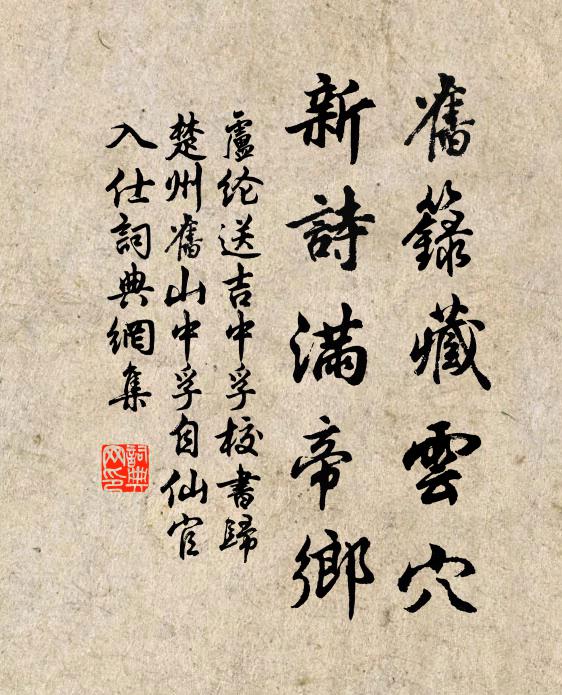 舊籙藏雲穴
新詩滿帝鄉
盧纶送吉中孚校書歸
楚州舊山中孚自仙官
入仕詞典網集
詞典
网印